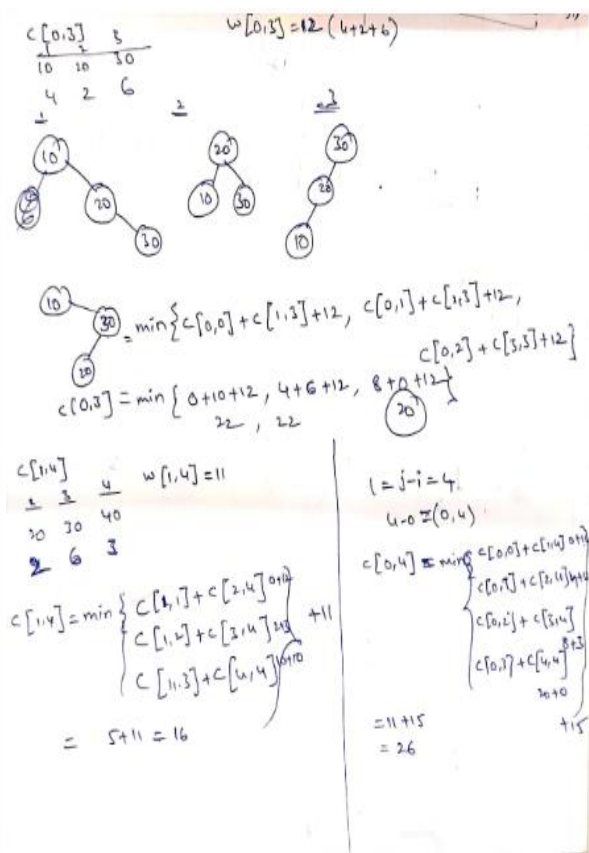 c[0,3]
w[0,3] = 12 (4+2+6)
1 2 3
10 20 30
4 2 6
1
2
3
10
20
30
20
10
30
30
20
10
10
30
20
= min { c[0,0] + c[1,3] + 12, c[0,1] + c[2,3] + 12,
c[0,2] + c[3,3] + 12 }
c[0,3] = min { 0+10+12, 4+6+12, 8+0+12 }
22, 22
20
c[1,4]
w[1,4] = 11
2 3 4
20 30 40
2 6 3
c[1,4] = min { c[1,1] + c[2,4] 0+12
c[1,2] + c[3,4] 2+3
c[1,3] + c[4,4] 10+0
+11
= 5+11 = 16
l = j-i = 4
4-0 = (0,4)
c[0,4] = min { c[0,0] + c[1,4]
c[0,1] + c[2,4]
c[0,2] + c[3,4] 8+3
c[0,3] + c[4,4]
20+0
+15
= 11+15
= 26